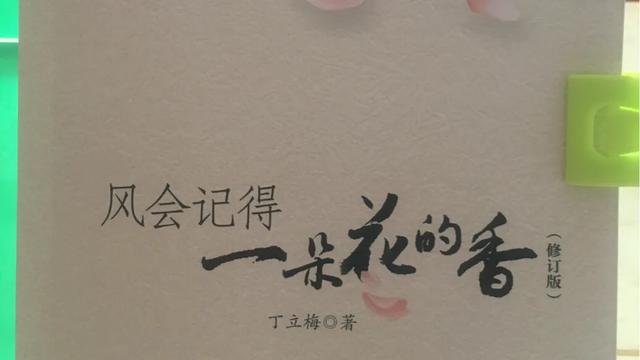 风会记得
一朵花的香
(修订版)
丁立梅◎著